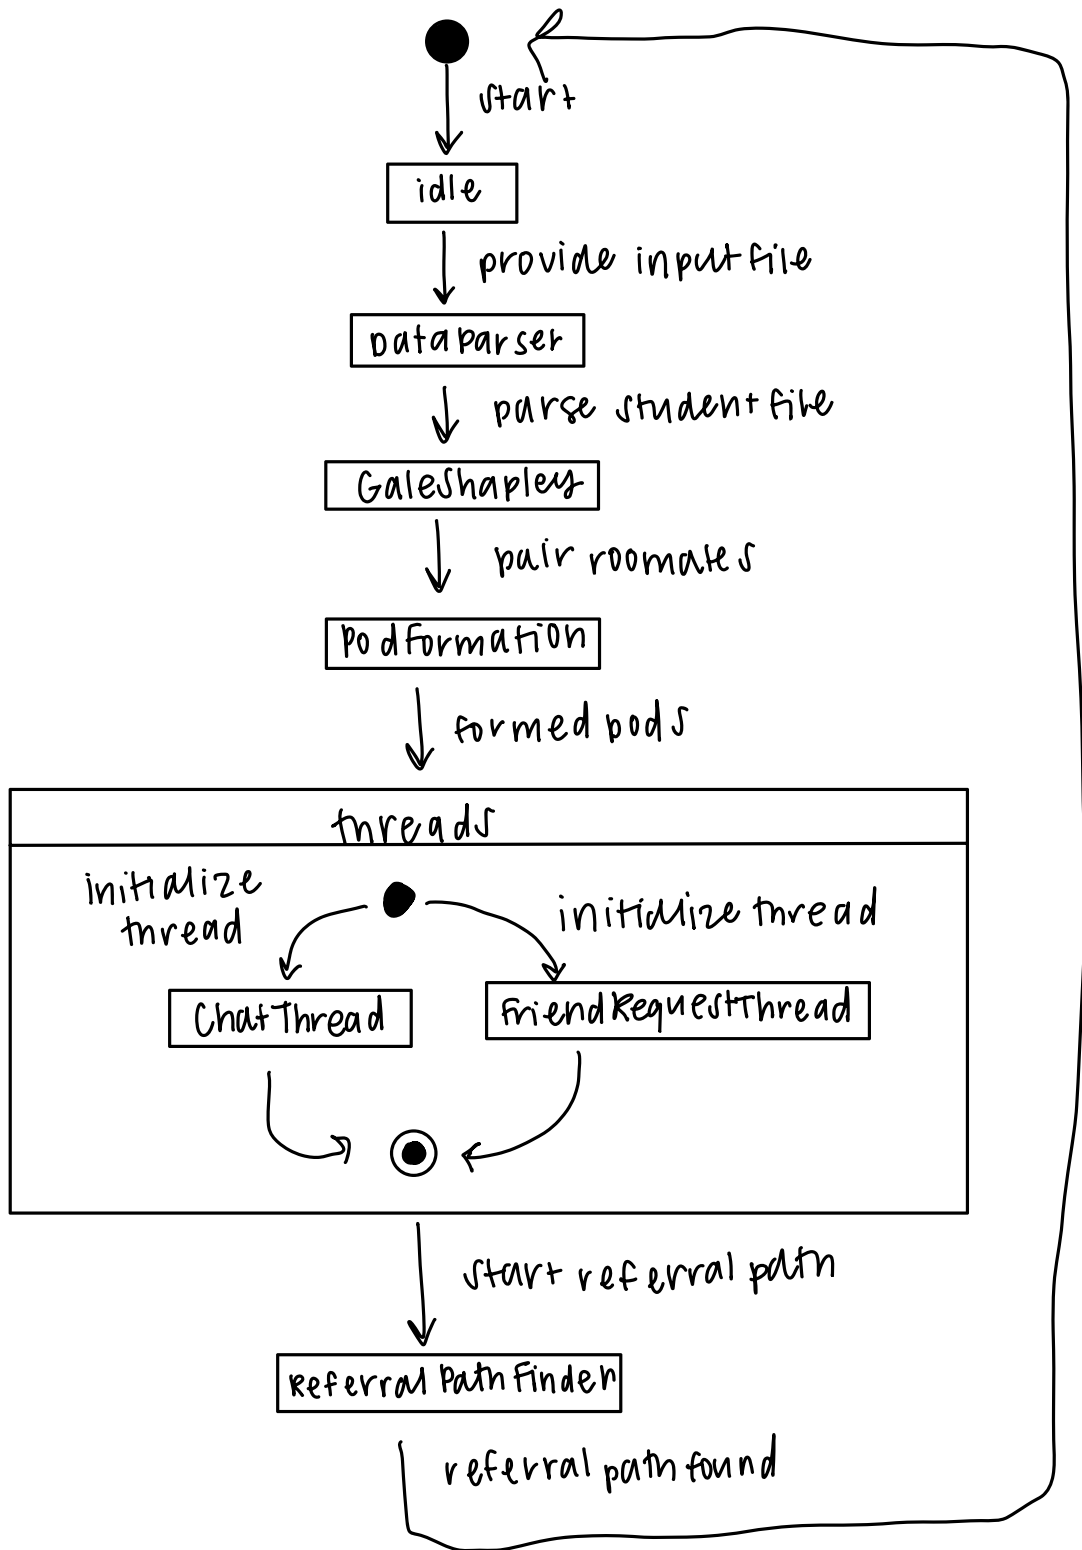 start
idle
provide input file
DataParser
parse student file
GaleShapley
pair roomates
PodFormation
formed pods
threads
initialize
thread
initialize thread
ChatThread
FriendRequestThread
start referral path
ReferralPathFinder
referral path found